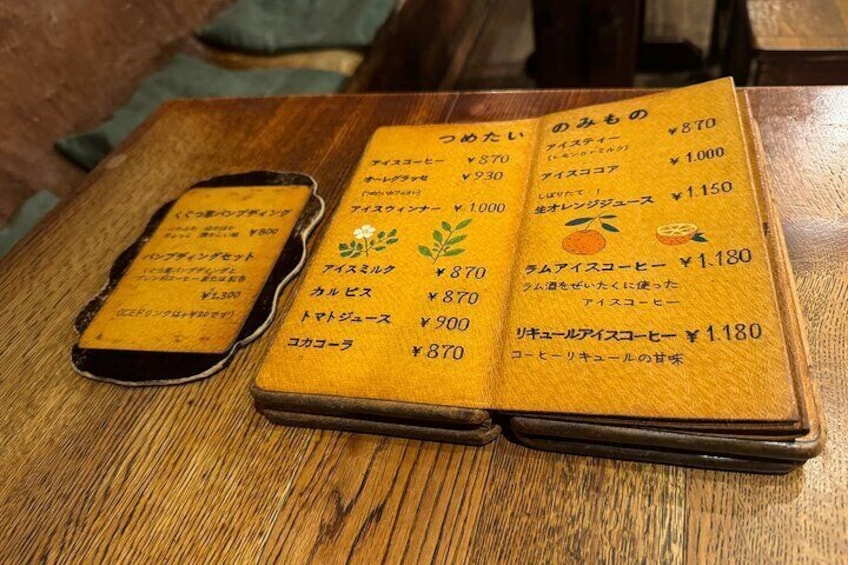 くぐつ草パンプディング
ふわふわ ほかほか
ちょっと 懐かしい味 ¥800
パンプディングセット
くぐつ草パンプディングと
ブレンドコーヒーまたは紅茶
¥1,300
(ICEドリンクは+¥20です)
つめたい のみもの
アイスコーヒー ¥870
オーレグラッセ ¥930
アイスウィンナー ¥1,000
アイスミルク ¥870
カルピス ¥870
トマトジュース ¥900
コカコーラ ¥870
アイスティー ¥870
(レモンorミルク)
アイスココア ¥1,000
しぼりたて!
生オレンジジュース ¥1,150
ラムアイスコーヒー ¥1,180
ラム酒をぜいたくに使った
アイスコーヒー
リキュールアイスコーヒー ¥1,180
コーヒーリキュールの甘味